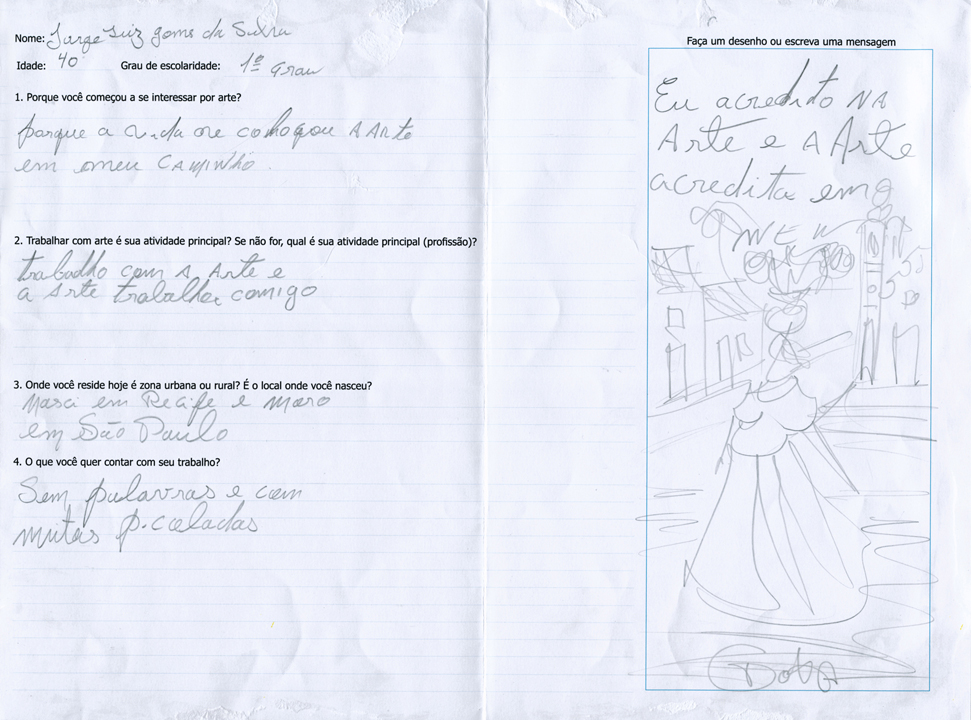 Nome: Jorge Luiz goms da Silva
Idade: 40 Grau de escolaridade: 1º Grau
1. Porque você começou a se interessar por arte?
porque a vida me colocou A ARte
em meu CAMINHO.
2. Trabalhar com arte é sua atividade principal? Se não for, qual é sua atividade principal (profissão)?
trabalho com A Arte e
a Arte trabalha comigo
3. Onde você reside hoje é zona urbana ou rural? É o local onde você nasceu?
Nasci em Recife e moro
em São Paulo
4. O que você quer contar com seu trabalho?
Sem palavras e com
muitas
Faça um desenho ou escreva uma mensagem
Eu acredito NA
Arte e A Arte
acredita em